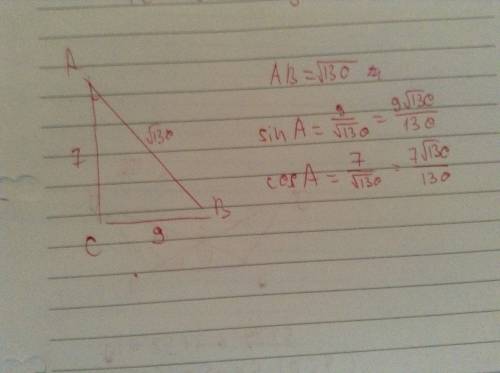 A
7
√130
C
9
B
AB = √130
sin A = 9/√130 = 9√130/130
cos A = 7/√130 = 7√130/130